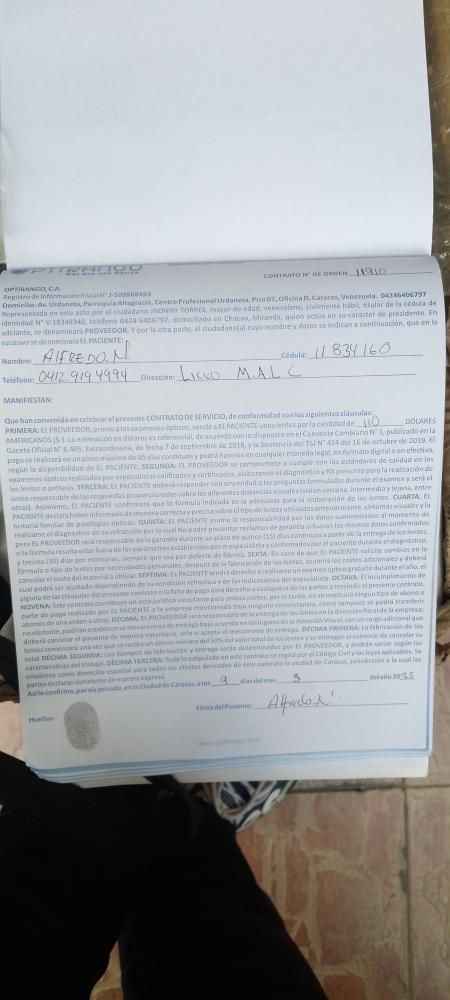 OPTIRANGO
CONTRATO N° DE ORDEN 11916
OPTIRANGO, C.A.
Registro de Información Fiscal N° J-505868454
Domicilio: Av. Urdaneta, Parroquia Altagracia, Centro Profesional Urdaneta, Piso 07, Oficina D, Caracas, Venezuela. 04246406797
Representada en este acto por el ciudadano JHONNY TORRES, mayor de edad, venezolano, civilmente hábil, titular de la cédula de
identidad N° V-18348340, teléfono 0424-6406797, domiciliado en Chacao, Miranda, quien actúa en su carácter de presidente. En
adelante, se denominará PROVEEDOR. Y por la otra parte, el ciudadano(a) cuyo nombre y datos se indican a continuación, que en lo
sucesivo se denominará EL PACIENTE:
Nombre: ALFREDO N Cédula: 11 834 160
Teléfono: 0412 919 4994 Dirección: LICEO M.A.L C
MANIFIESTAN:
Que han convenido en celebrar el presente CONTRATO DE SERVICIO, de conformidad con las siguientes cláusulas:
PRIMERA: EL PROVEEDOR, previo a los exámenes ópticos, vende a EL PACIENTE unos lentes por la cantidad de 110 DÓLARES
AMERICANOS ($-). La estimación en dólares es referencial, de acuerdo con lo dispuesto en el Convenio Cambiario N° 1, publicado en la
Gaceta Oficial N° 6.405, Extraordinaria, de fecha 7 de septiembre de 2018, y la Sentencia del TSJ N° 424 del 16 de octubre de 2019. El
pago se realizará en un plazo máximo de 45 días continuos y podrá hacerse en cualquier moneda legal, en formato digital o en efectivo,
según la disponibilidad de EL PACIENTE. SEGUNDA: EL PROVEEDOR se compromete a cumplir con los estándares de calidad en los
exámenes ópticos realizados por especialistas calificados y certificados, elaborando el diagnóstico y RX prescrito para la realización de
los lentes o prótesis. TERCERA: EL PACIENTE deberá responder con sinceridad a las preguntas formuladas durante el examen y será el
único responsable de las respuestas proporcionadas sobre las diferentes distancias visuales (visión cercana, intermedia y lejana, entre
otras). Asimismo, EL PACIENTE confirmará que la fórmula indicada es la adecuada para la elaboración de los lentes. CUARTA: EL
PACIENTE declara haber informado de manera correcta y precisa sobre el tipo de lentes utilizados anteriormente, síntomas visuales y la
historia familiar de patologías ópticas. QUINTA: EL PACIENTE asume la responsabilidad por los datos suministrados al momento de
realizarse el diagnóstico de su refracción por lo cual No podrá presentar reclamos de garantía si fueran los mismos datos confirmados
pero EL PROVEEDOR será responsable de la garantía durante un plazo de quince (15) días continuos a partir de la entrega de los lentes,
si la fórmula resulta estar fuera de los parámetros establecidos por el especialista y confirmados por el paciente durante el diagnóstico,
y treinta (30) días por monturas, siempre que sea por defecto de fábrica. SEXTA: En caso de que EL PACIENTE solicite cambios en la
fórmula o tipo de lentes por necesidades personales, después de la fabricación de los lentes, asumirá los costes adicionales y deberá
cancelar el costo del material a utilizar. SÉPTIMA: EL PACIENTE tendrá derecho a realizarse un examen óptico gratuito durante el año, el
cual podrá ser ajustado dependiendo de su condición refractiva y de las indicaciones del especialista. OCTAVA: El incumplimiento de
alguna de las cláusulas del presente contrato o la falta de pago dará derecho a cualquiera de las partes a rescindir el presente contrato.
NOVENA: Este contrato constituye un acto jurídico vinculante para ambas partes; por lo tanto, no se restituirá ningún tipo de abono o
parte de pago realizado por EL PACIENTE a la empresa mencionada bajo ninguna circunstancia, como tampoco se podrá transferir
abonos de una orden a otra). DÉCIMA: EL PROVEEDOR será responsable de la entrega de los lentes en la dirección fiscal de la empresa;
no obstante, podrían establecerse mecanismos de entrega bajo acuerdo en los lugares de la Atención Visual, con un cargo adicional que
deberá cancelar el paciente de manera voluntaria, solo si acepta el mecanismo de entrega. DÉCIMA PRIMERA: La fabricación de los
lentes comenzará una vez que se reciba un abono mínimo del 50% del valor total de los lentes y se entregan al culminar de cancelar su
total DÉCIMA SEGUNDA: Los tiempos de fabricación y entrega serán determinados por EL PROVEEDOR, y podrán variar según las
características del trabajo. DÉCIMA TERCERA: Todo lo estipulado en este contrato se regirá por el Código Civil y las leyes aplicables. Se
establece como domicilio especial para todos los efectos derivados de este contrato la ciudad de Caracas, jurisdicción a la cual las
partes declaran someterse de manera expresa.
Así lo confirmo, por vía privada, en la Ciudad de Caracas, a los 9 días del mes 3 del año 2025
Firma del Paciente: Alfredo N
Huellas:
www.optirango.com